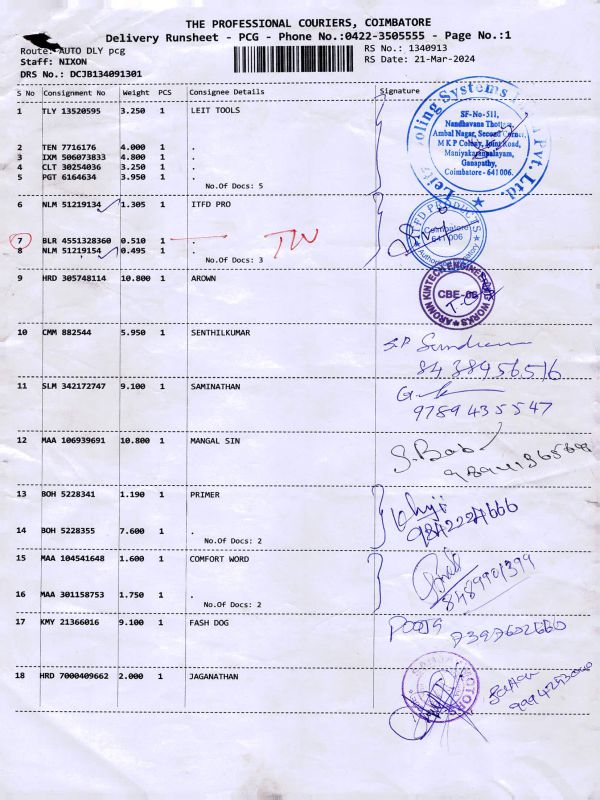 THE PROFESSIONAL COURIERS, COIMBATORE
Delivery Runsheet - PCG - Phone No.:0422-3505555 - Page No.:1
Route: AUTO DLY pcg
RS No.: 1340913
Staff: NIXON
RS Date: 21-Mar-2024
DRS No.: DCJB134091301
S No Consignment No Weight PCS Consignee Details Signature
1 TLY 13520595 3.250 1 LEIT TOOLS
2 TEN 7716176 4.000 1 .
3 IXM 506073833 4.800 1 .
4 CLT 30254036 3.250 1 .
5 PGT 6164634 3.950 1 .
No.Of Docs: 5
SF-No-511,
Nandhavana Thottam,
Ambal Nagar, Second Corner,
M K P Colony, Joint Road,
Maniyakaranpalayam,
Ganapathy,
Coimbatore - 641 006.
6 NLM 51219134 1.305 1 ITFD PRO
7 BLR 4551328360 0.510 1 .
8 NLM 51219154 0.495 1 .
No.Of Docs: 3
ITFD PRODUCTS
Coimbatore
641 006
9 HRD 305748114 10.800 1 AROWN
CBE-06
10 CMM 882544 5.950 1 SENTHILKUMAR
S.P Sundram
8438956516
11 SLM 342172747 9.100 1 SAMINATHAN
9789435547
12 MAA 106939691 10.800 1 MANGAL SIN
S.Bab
13 BOH 5228341 1.190 1 PRIMER
14 BOH 5228355 7.600 1 .
No.Of Docs: 2
15 MAA 104541648 1.600 1 COMFORT WORD
8489901399
16 MAA 301158753 1.750 1 .
No.Of Docs: 2
17 KMY 21366016 9.100 1 FASH DOG
Pooja 7397602660
18 HRD 7000409662 2.000 1 JAGANATHAN